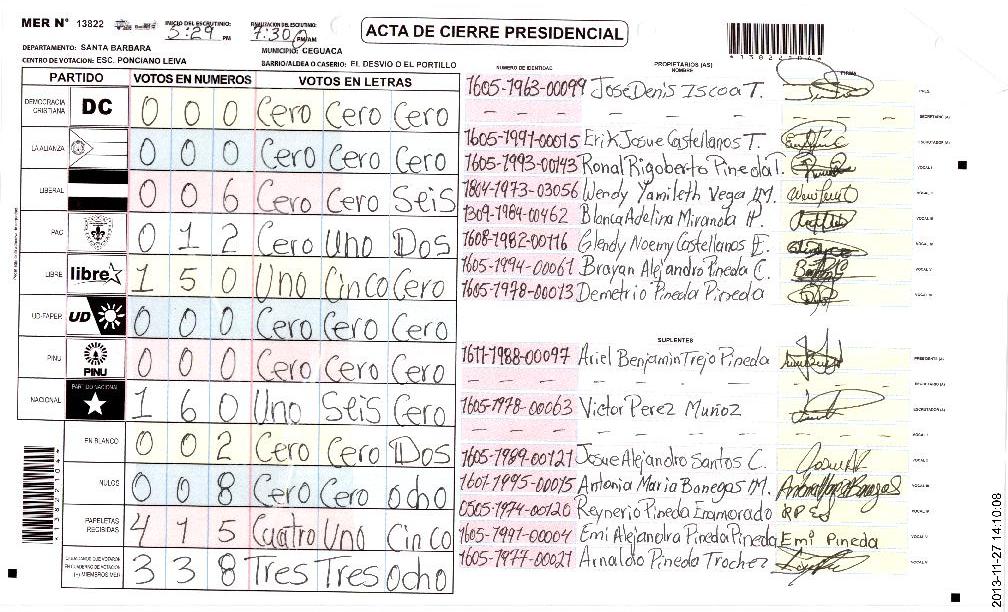 MER Nº 13822
INICIO DEL ESCRUTINIO: 5:29 PM
FINALIZACION DEL ESCRUTINIO: 7:30 PM/AM
ACTA DE CIERRE PRESIDENCIAL
DEPARTAMENTO: SANTA BARBARA
MUNICIPIO: CEGUACA
CENTRO DE VOTACION: ESC. PONCIANO LEIVA
BARRIO/ALDEA O CASERIO: EL DESVIO O EL PORTILLO
PARTIDO VOTOS EN NUMEROS VOTOS EN LETRAS
DEMOCRACIA CRISTIANA DC 0 0 0 Cero Cero Cero
LA ALIANZA 0 0 0 Cero Cero Cero
LIBERAL 0 0 6 Cero Cero Seis
PAC 0 1 2 Cero Uno Dos
LIBRE libre 1 5 0 Uno Cinco Cero
UD-FAPER UD 0 0 0 Cero Cero Cero
PINU PINU 0 0 0 Cero Cero Cero
NACIONAL PARTIDO NACIONAL 1 6 0 Uno Seis Cero
EN BLANCO 0 0 2 Cero Cero Dos
NULOS 0 0 8 Cero Cero ocho
PAPELETAS RECIBIDAS 4 1 5 Cuatro Uno Cinco
3 3 8 Tres Tres Ocho
NUMERO DE IDENTIDAD
PROPIETARIOS (AS)
NOMBRE
FIRMA
1605-1963-00099 José Denis Iscoa T. PRES.
- - - - SECRETARIO (A)
1605-1991-00015 Erik Josue Castellanos T. ESCRUTADOR (A)
1605-1993-00143 Ronal Rigoberto Pineda T. VOCAL I
1804-1973-03056 Wendy Yamileth Vega M. VOCAL II
1309-1984-00462 Blanca Adelina Miranda H. VOCAL III
1608-1982-00116 Glendy Noemy Castellanos E. VOCAL IV
1605-1994-00061 Brayan Alejandro Pineda C. VOCAL V
1605-1978-00013 Demetrio Pineda Pineda
SUPLENTES
1611-1988-00097 Ariel Benjamin Trejo Pineda PRESIDENTE (A)
- - - - SECRETARIO (A)
1605-1978-00063 Victor Perez Muñoz ESCRUTADOR (A)
- - - - VOCAL I
1605-1989-00121 Josue Alejandro Santos C. VOCAL II
1601-1995-00015 Antonia Maria Banegas M. VOCAL III
0505-1974-00120 Reynerio Pineda Enamorado VOCAL IV
1605-1991-00004 Emi Alejandra Pineda Pineda Emi Pineda VOCAL V
1605-1977-00021 Arnaldo Pineda Trochez
2013-11-27 14:10:08